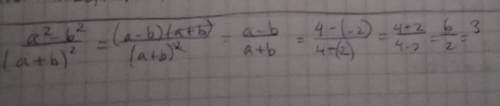 a² - b² / (a+b)² = (a-b)(a+b) / (a+b)² = a-b / a+b = 4-(-2) / 4+(2) = 4+2 / 4-2 = 6 / 2 = 3